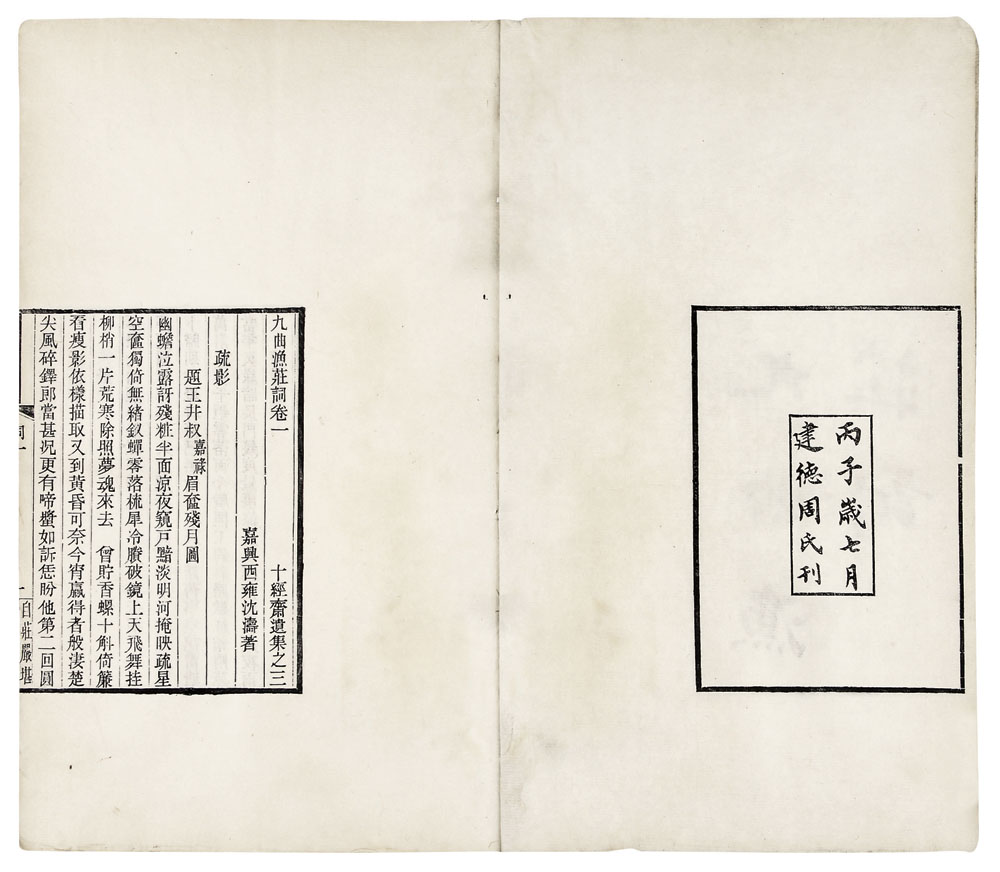 丙子歲七月
建德周氏刊
九曲漁莊詞卷一　十經齋遺集之三
嘉興西雍沈濤著
疏影
題王井叔嘉祿眉奩殘月圖
幽蟾泣露訝殘粧半面凉夜窺戶黯淡明河掩映疏星
空奩獨倚無緒釵蟬零落梳犀冷賸破鏡上天飛舞挂
柳梢一片荒寒除照夢魂來去　曾貯香螺十斛倚簾
看瘦影依樣描取又到黄昏可奈今宵贏得者般淒楚
尖風碎鐸郎當甚况更有啼螿如訴恁盼他第二回圓
詞一
一
自莊嚴堪